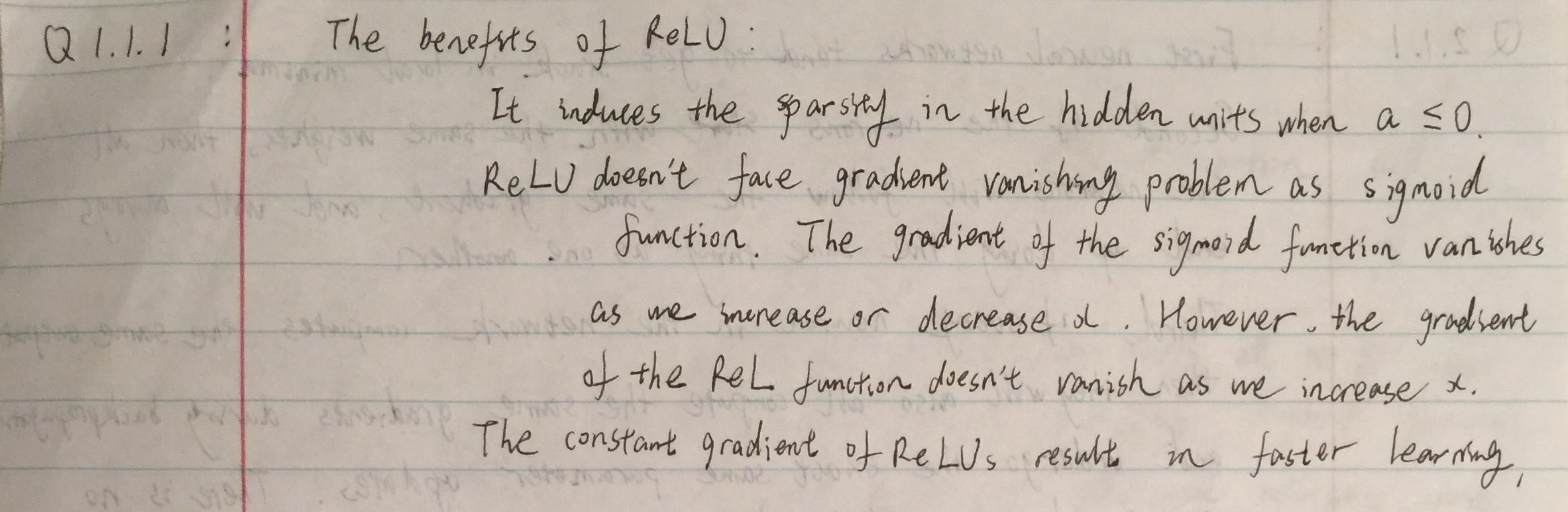 Q 1.1.1 : The benefits of ReLU :
It induces the sparsity in the hidden units when a ≤ 0.
ReLU doesn't face gradient vanishing problem as sigmoid
function. The gradient of the sigmoid function vanishes
as we increase or decrease x. However, the gradient
of the ReL function doesn't vanish as we increase x.
The constant gradient of ReLUs result in faster learning,